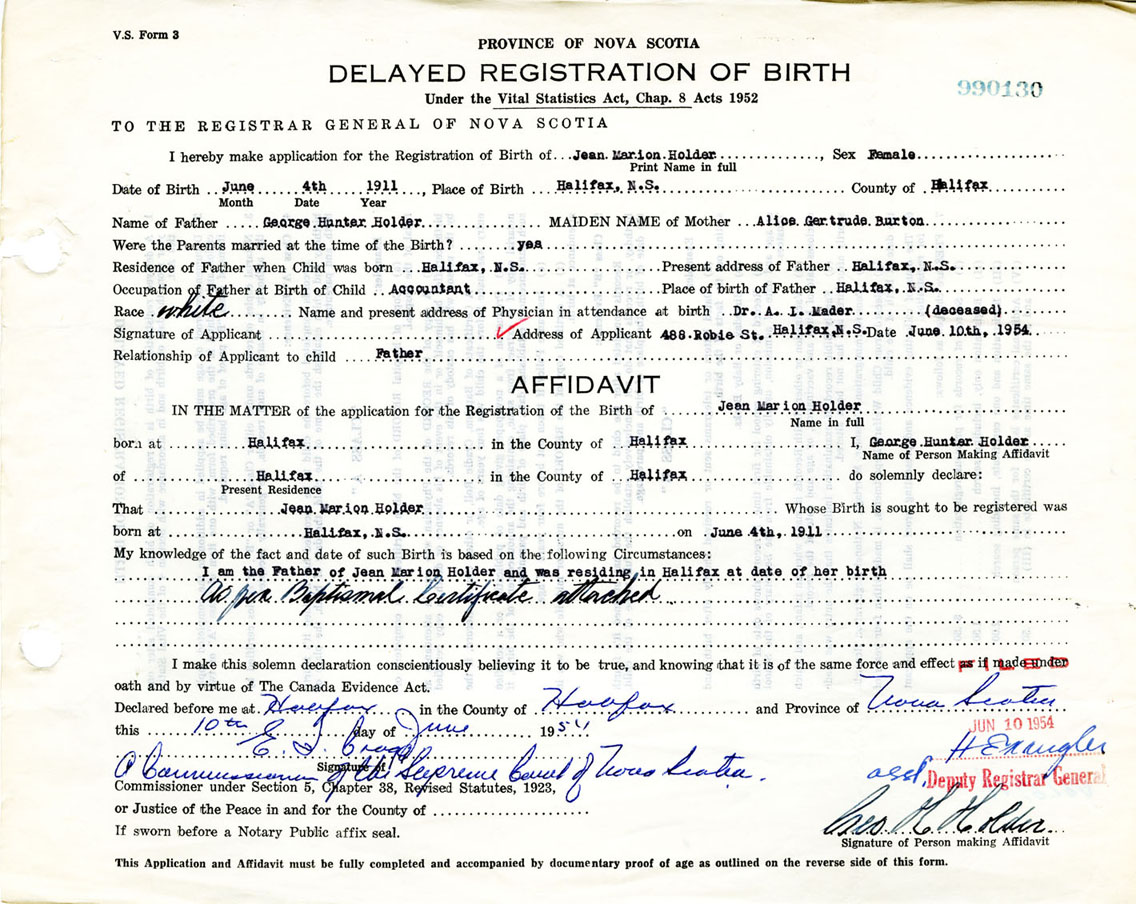 V.S. Form 3
PROVINCE OF NOVA SCOTIA
DELAYED REGISTRATION OF BIRTH
990130
Under the Vital Statistics Act, Chap. 8 Acts 1952
TO THE REGISTRAR GENERAL OF NOVA SCOTIA
I hereby make application for the Registration of Birth of Jean Marion Holder, Sex Female
Print Name in full
Date of Birth June 4th 1911, Place of Birth Halifax, N.S. County of Halifax
Month Date Year
Name of Father George Hunter Holder MAIDEN NAME of Mother Alice Gertrude Burton
Were the Parents married at the time of the Birth? yes
Residence of Father when Child was born Halifax, N.S. Present address of Father Halifax, N.S.
Occupation of Father at Birth of Child Accountant Place of birth of Father Halifax, N.S.
Race white Name and present address of Physician in attendance at birth Dr. A. I. Mader (deceased)
Signature of Applicant ✓ Address of Applicant 488 Robie St. Halifax, N.S. Date June 10th, 1954
Relationship of Applicant to child Father
AFFIDAVIT
IN THE MATTER of the application for the Registration of the Birth of Jean Marion Holder
Name in full
born at Halifax in the County of Halifax I, George Hunter Holder
Name of Person Making Affidavit
of Halifax in the County of Halifax do solemnly declare:
Present Residence
That Jean Marion Holder Whose Birth is sought to be registered was
born at Halifax, N.S. on June 4th, 1911
My knowledge of the fact and date of such Birth is based on the following Circumstances:
I am the Father of Jean Marion Holder and was residing in Halifax at date of her birth
As per Baptismal Certificate attached
I make this solemn declaration conscientiously believing it to be true, and knowing that it is of the same force and effect as if made under
FILED
oath and by virtue of The Canada Evidence Act.
Declared before me at Halifax in the County of Halifax and Province of Nova Scotia
this 10th day of June 1954
JUN 10 1954
E.
Signature of
A Commissioner of the Supreme Court of Nova Scotia.
asst. Deputy Registrar General
Commissioner under Section 5, Chapter 38, Revised Statutes, 1923,
or Justice of the Peace in and for the County of
Geo. H. Holder
If sworn before a Notary Public affix seal.
Signature of Person making Affidavit
This Application and Affidavit must be fully completed and accompanied by documentary proof of age as outlined on the reverse side of this form.